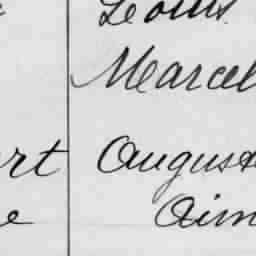 Louis
Marcel
rt August
e Aim